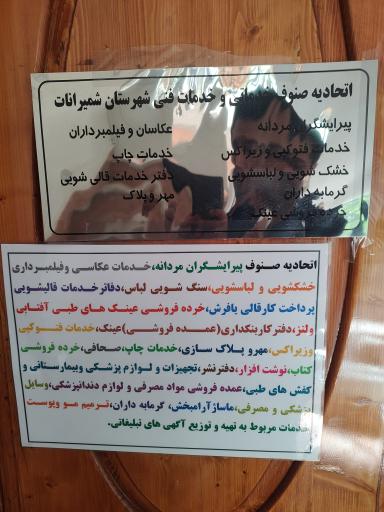 اتحادیه صنوف خدماتی و خدمات فنی شهرستان شمیرانات
پیرایشگران مردانه
عکاسان و فیلمبرداران
خدمات فتوکپی و زیراکس
خدمات چاپ
خشک شویی و لباسشویی
دفتر خدمات قالی شویی
گرمابه داران
مهر و پلاک
خرده فروشی عینک
اتحادیه صنوف پیرایشگران مردانه،خدمات عکاسی وفیلمبرداری
خشکشویی و لباسشویی،سنگ شویی لباس،دفاترخدمات قالیشویی
پرداخت کارقالی یافرش،خرده فروشی عینک های طبی آفتابی
ولنز،دفترکاربنکداری(عمده فروشی)عینک،خدمات فتوکپی
وزیراکس،مهرو پلاک سازی،خدمات چاپ،صحافی،خرده فروشی
کتاب،نوشت افزار،دفترنشر،تجهیزات و لوازم پزشکی وبیمارستانی و
کفش های طبی،عمده فروشی مواد مصرفی و لوازم دندانپزشکی،وسایل
پزشکی و مصرفی،ماساژآرامبخش، گرمابه داران،ترمیم مو وپوست
خدمات مربوط به تهیه و توزیع آگهی های تبلیغاتی.